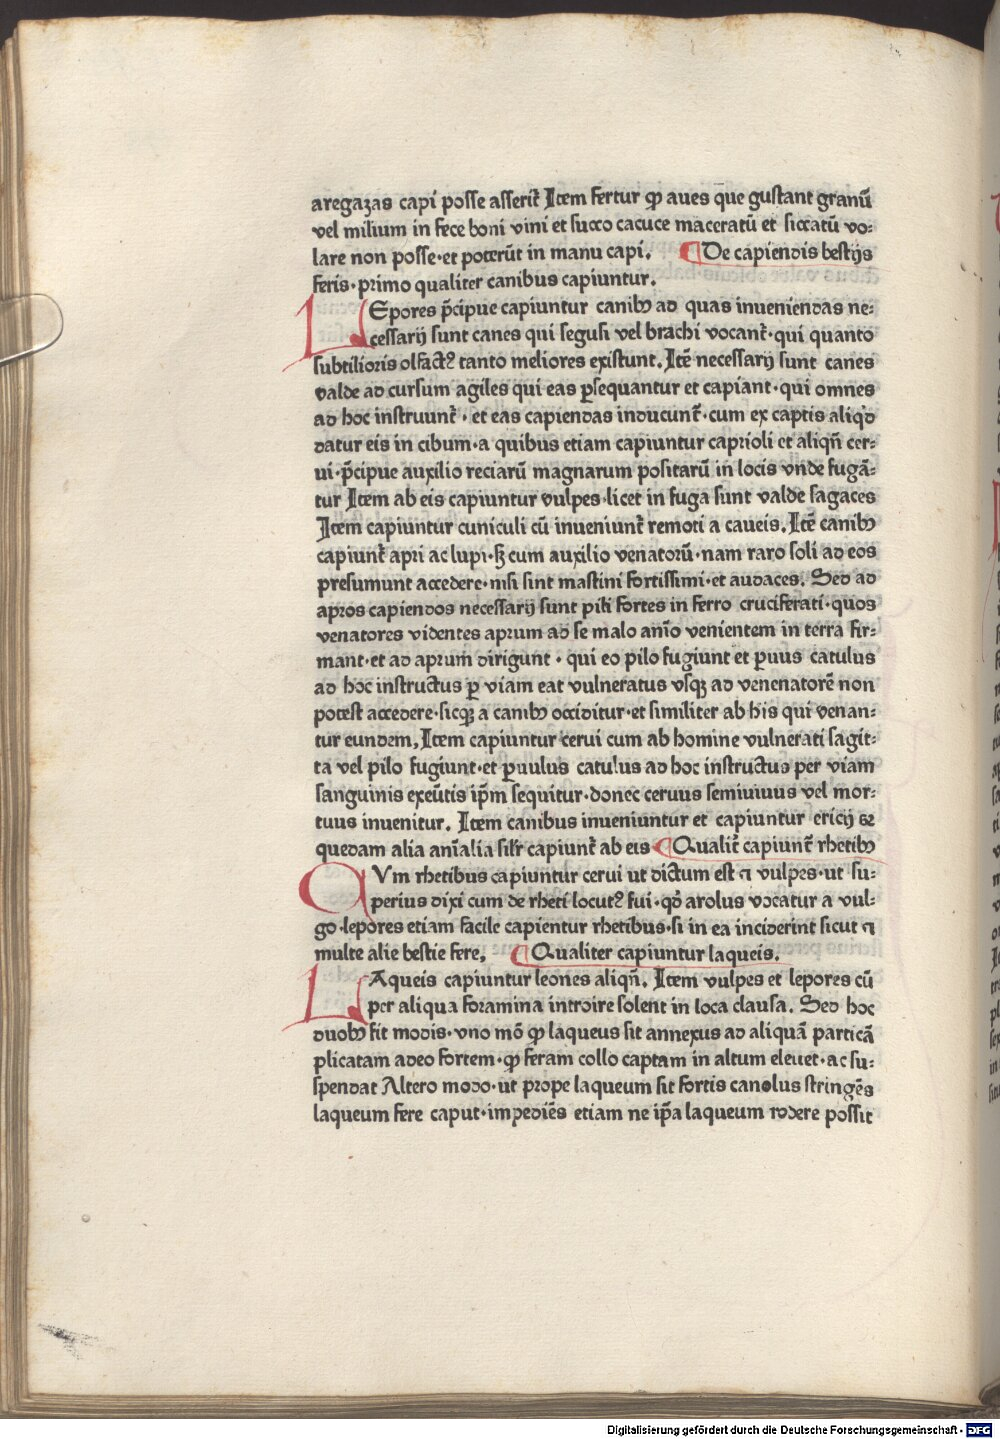 aregazas capi posse asserit᷑ Item fertur ꝙ aues que gustant granū
vel milium in fece boni vini et succo cacuce maceratū et siccatū vo⸗
lare non posse·et poterūt in manu capi. ¶ De capiendis bestijs
feris·primo qualiter canibus capiuntur.
LEpores p̄cipue capiuntur canibꝫ ad quas inueniendas ne⸗
cessarij sunt canes qui segusi vel brachi vocant᷑·qui quanto
subtilioris olfactꝰ tanto meliores existunt. Itē necessarij sunt canes
valde ad cursum agiles qui eas ꝑsequantur et capiant·qui omnes
ad hoc instruunt᷑·et eas capiendas inducunt᷑·cum ex captis aliqͦd
datur eis in cibum·a quibus etiam capiuntur caprioli et aliqn̄ cer⸗
ui·p̄cipue auxilio reciarū magnarum positarū in locis vnde fugā⸗
tur Item ab eis capiuntur vulpes·licet in fuga sunt valde sagaces
Item capiuntur cuniculi cū inueniunt᷑ remoti a caueis. Itē canibꝫ
capiunt᷑ apri ac lupi·sꝫ cum auxilio venatorū·nam raro soli ad eos
presumunt accedere·nisi sint mastini fortissimi·et audaces. Sed ad
apros capiendos necessarij sunt pili fortes in ferro cruciferati·quos
venatores videntes aprum ad se malo anīo venientem in terra fir⸗
mant·et ad aprum dirigunt·qui eo pilo fugiunt et ꝑuus catulus
ad hoc instructus ꝑ viam eat vulneratus vsqꝫ ad venenatorē non
potest accedere·sicqꝫ a canibꝫ occiditur·et similiter ab his qui venan⸗
tur eundem, Item capiuntur cerui cum ab homine vulnerati sagit⸗
ta vel pilo fugiunt·et ꝑuulus catulus ad hoc instructus per viam
sanguinis exeūtis ip̄m sequitur·donec ceruus semiuiuus vel mor⸗
tuus inuenitur. Item canibus inueniuntur et capiuntur ericij et
quedam alia anīalia silr̄ capiunt᷑ ab eis ¶ Qualit᷑ capiunt᷑ rhetibꝫ
CVm rhetibus capiuntur cerui ut dictum est ⁊ vulpes·ut su⸗
perius dixi cum de rheti locutꝰ fui·qd̄ arolus vocatur a vul⸗
go·lepores etiam facile capientur rhetibus·si in ea inciderint sicut ⁊
multe alie bestie fere, ¶ Qualiter capiuntur laqueis.
LAqueis capiuntur leones aliqn̄. Item vulpes et lepores cū
per aliqua foramina introire solent in loca clausa. Sed hoc
duobꝫ fit modis·vno mō ꝙ laqueus sit annexus ad aliquā particā
plicatam adeo fortem·ꝙ feram collo captam in altum eleuet·ac su⸗
spendat Altero modo·ut prope laqueum sit fortis canolus stringēs
laqueum fere caput·impediēs etiam ne ip̄a laqueum rodere possit
Digitalisierung gefördert durch die Deutsche Forschungsgemeinschaft - DFG